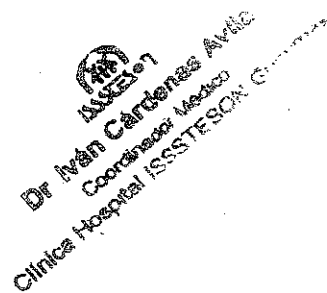 ISSSTESON
Dr Iván Cárdenas Avila
Coordinador Médico
Clínica Hospital ISSSTESON